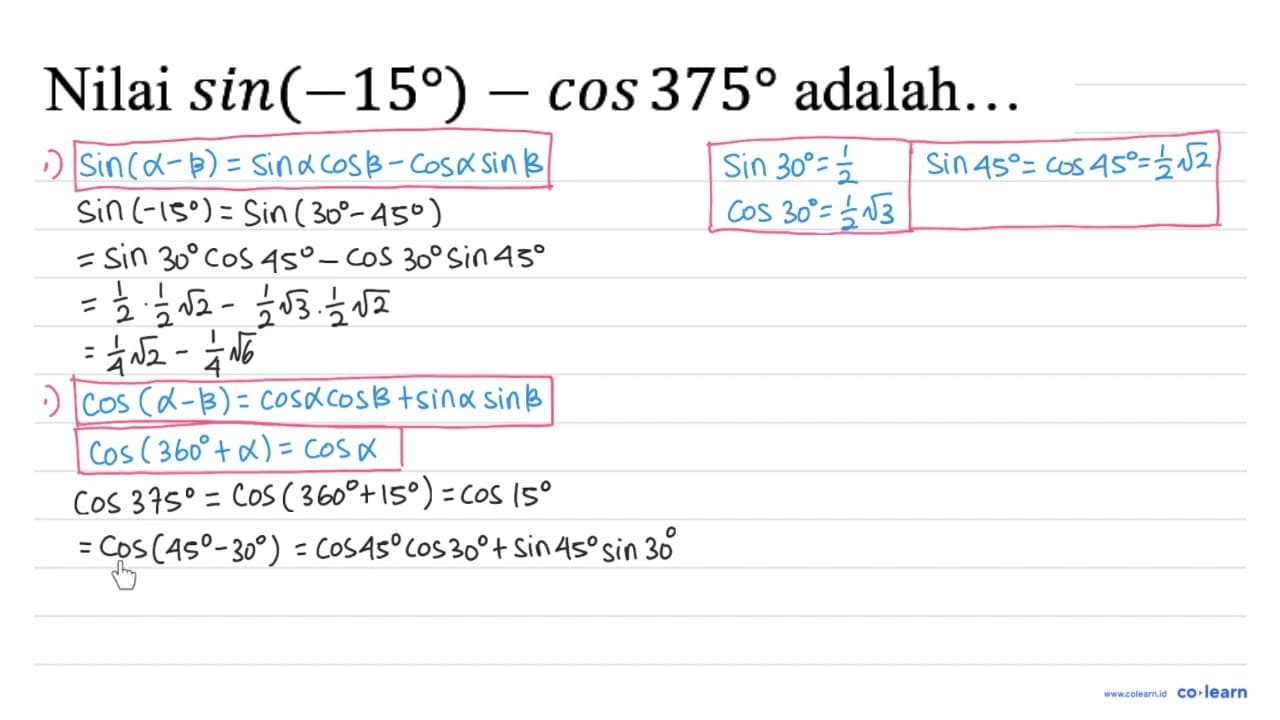 Nilai sin(−15°) − cos 375° adalah...
·) Sin(α−β) = Sinα cosβ − Cosα sinβ
Sin 30° = 1/2
Cos 30° = 1/2 √3
Sin 45° = cos 45° = 1/2 √2
Sin(−15°) = Sin(30°−45°)
= Sin 30° Cos 45° − Cos 30° Sin 45°
= 1/2 · 1/2 √2 − 1/2 √3 · 1/2 √2
= 1/4 √2 − 1/4 √6
·) Cos(α−β) = Cosα cosβ + sinα sinβ
Cos(360° + α) = Cos α
Cos 375° = Cos(360° + 15°) = Cos 15°
= Cos(45° − 30°) = Cos 45° Cos 30° + Sin 45° sin 30°
www.colearn.id co·learn